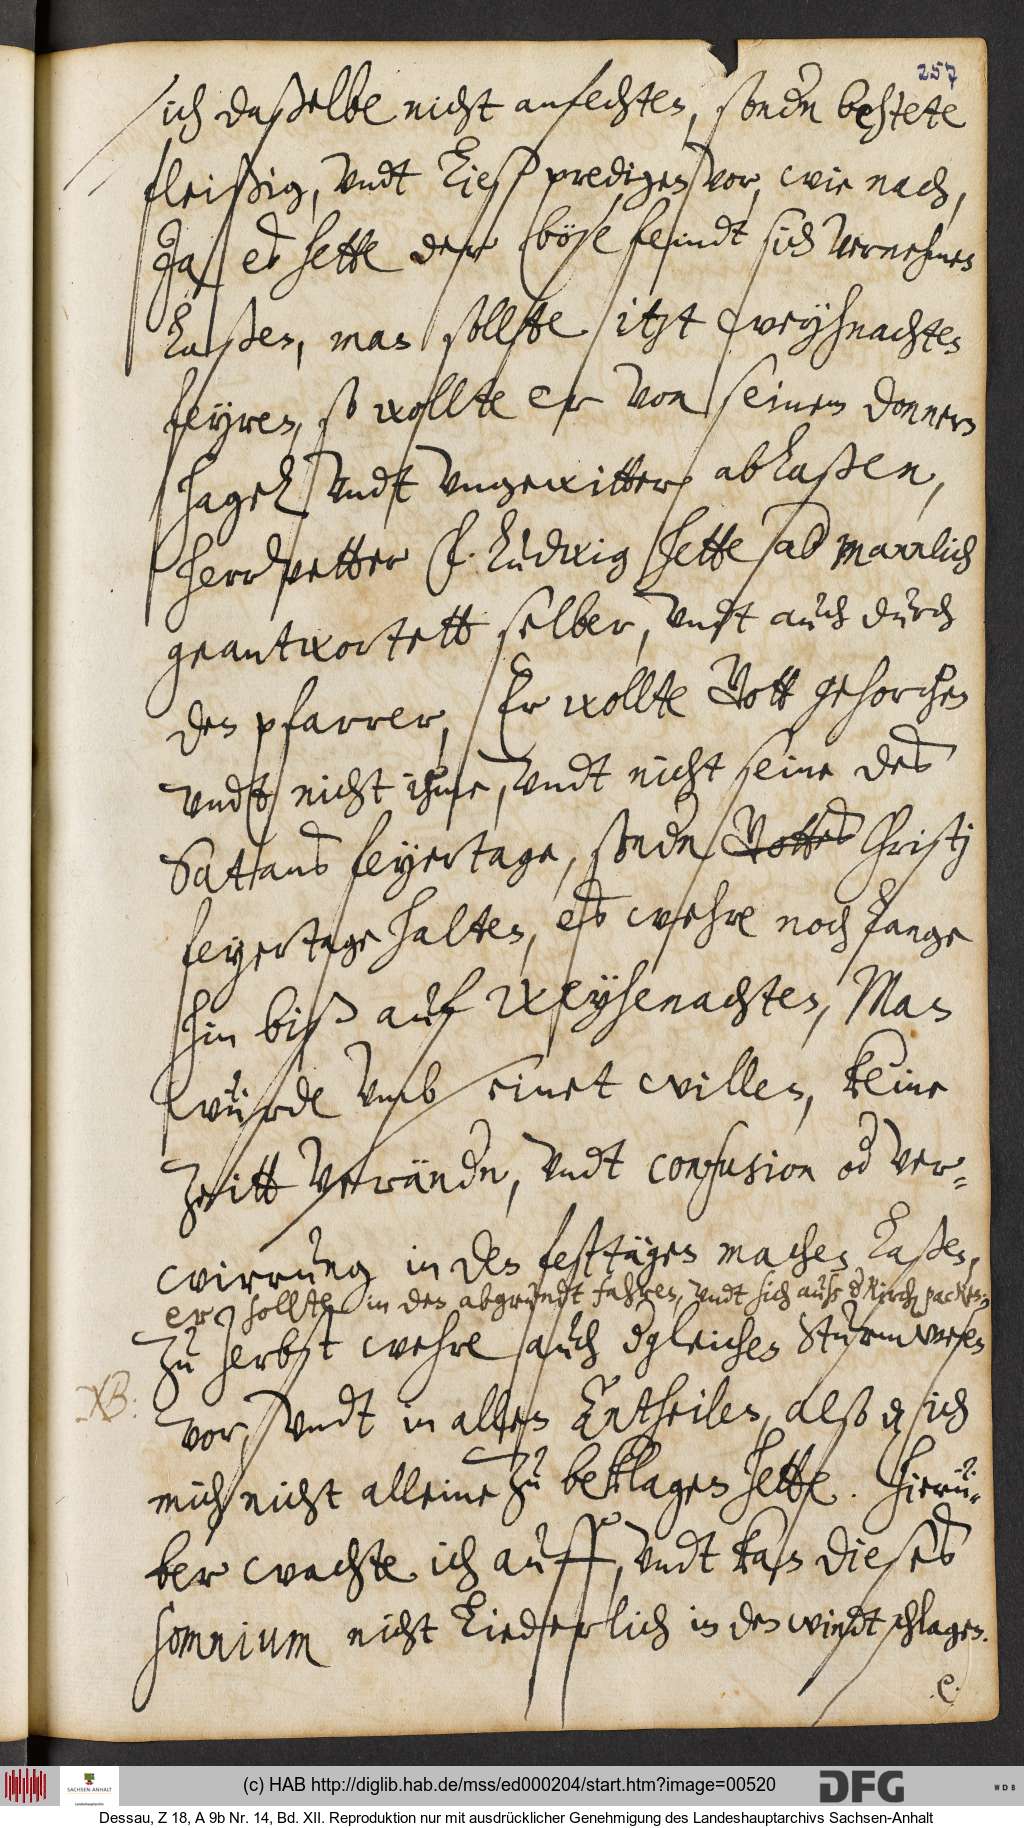 257
ich daßelbe nicht anfechten, sondn behtete
fleißig, vndt ließ predigen vor, wie nach,
Ja es hette der böse feindt sich vernehmen
laßen, man sollte itzt weyhnachten
feyren, so wollte er von seinem donnern
hagel vndt vngewitter ablaßen,
herr vetter f. Ludwig hette ab mannlich
geantwortett selber, vndt auch durch
den pfarrer, Er wollte Gott gehorchen
vndt nicht ihme, vndt nicht seine des
Satans feyertage, sondn Gottes Christj
feyertage halten, es wehre noch lange
hin biß auf Weyhenachten, Man
würde vmb seinet willen, keine
Zeitt verändn, vndt confusion od ver-
wirrung in den festtägen machen laßen,
er sollte in den abgrundt fahren, vndt sich auß d kirch packen.
Zu Zerbst wehre auch dgleichen Sturmwesen
NB:
vor, vndt in allen Antheilen, alß dz ich
mich nicht alleine zu beklagen hette. Hierü-
ber wachte ich auff, vndt kan dieses
somnium nicht liederlich in den windt schlagen.
e.
(c) HAB http://diglib.hab.de/mss/ed000204/start.htm?image=00520
SACHSEN-ANHALT
DFG
WDB
Dessau, Z 18, A 9b Nr. 14, Bd. XII. Reproduktion nur mit ausdrücklicher Genehmigung des Landeshauptarchivs Sachsen-Anhalt